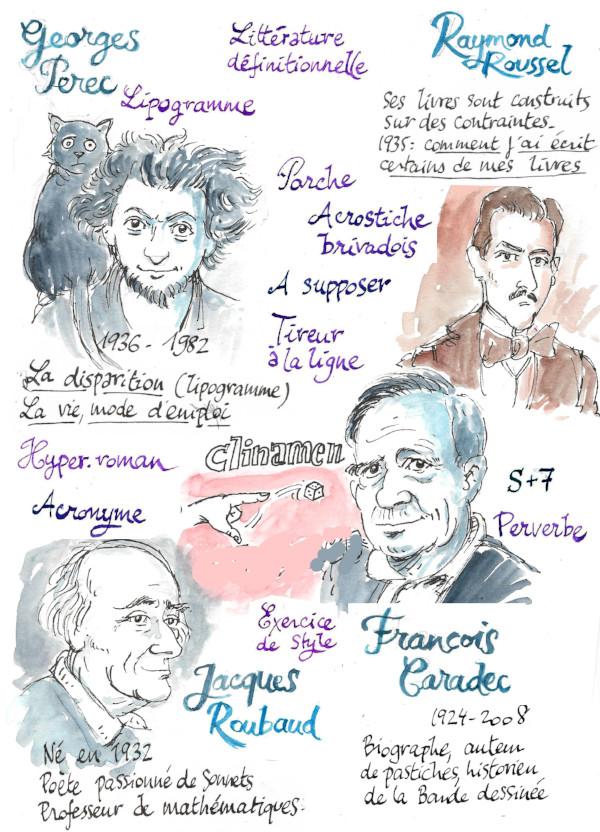 Georges
Perec
Lipogramme
Littérature
définitionnelle
Raymond
Roussel
Ses livres sont construits
sur des contraintes.
1935: comment j'ai écrit
certains de mes livres
Porche
Acrostiche
brivadois
A supposer
Tireur
à la ligne
1936-1982
La disparition (lipogramme)
La vie, mode d'emploi
Hyper-roman
Acronyme
Clinamen
S+7
Perverbe
Exercice
de style
Jacques
Roubaud
Né en 1932
Poète passionné de Sonnets
Professeur de mathématiques.
François
Caradec
1924-2008
Biographe, auteur
de pastiches, historien
de la Bande dessinée